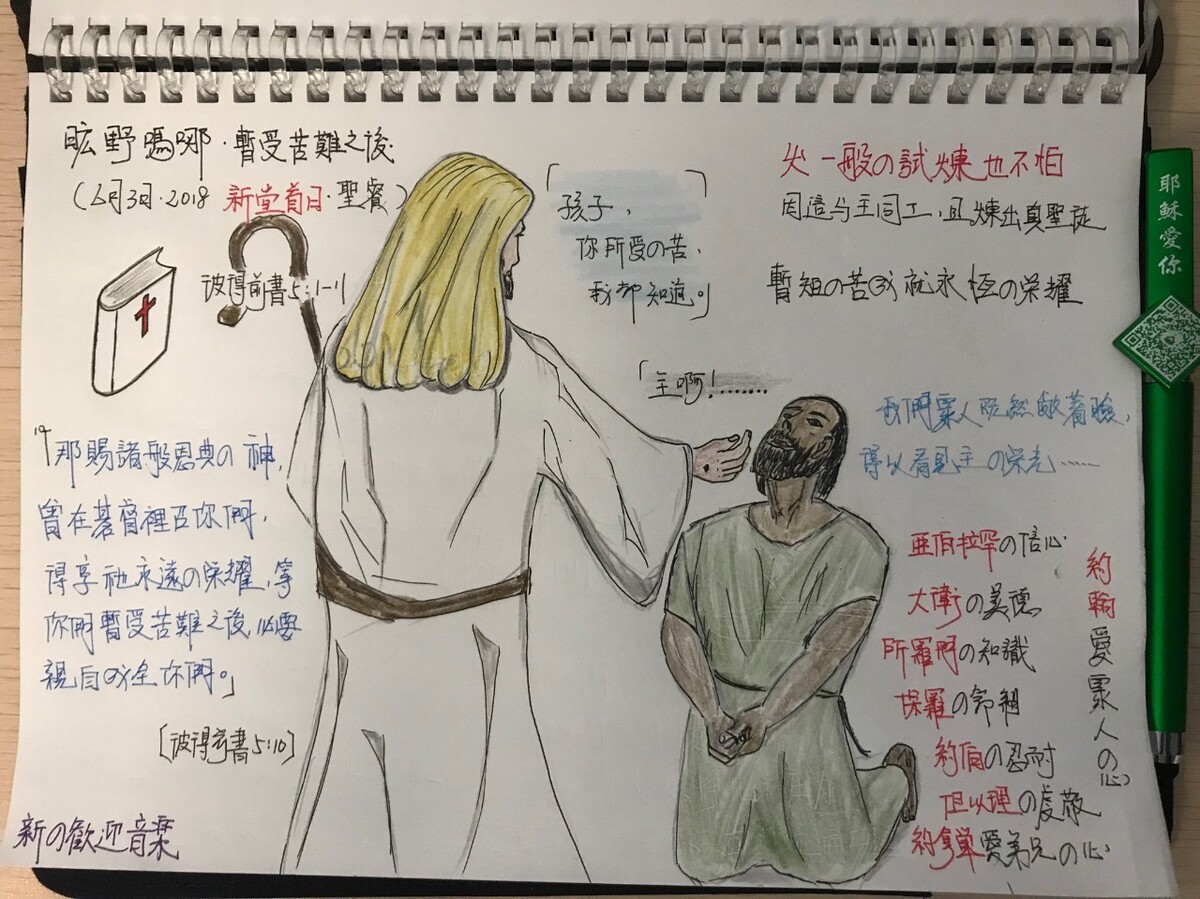 旷野嗎哪·暫受苦難之後
(6月3日·2018 新堂首日·聖餐)
彼得前書5:1-11
「孩子、
你所受の苦、
我都知道。」
火一般の試煉也不怕
因這与主同工、且煉出真聖徒
暫短の苦成就永恆の荣耀
耶穌愛你
「主啊!........
我們眾人既然敞著臉,
得以看見主の荣光......
「那賜諸般恩典の神,
曾在基督裡召你們,
得享祂永遠の荣耀,等
你們暫受苦難之後,必要
親自成全你們。」
[彼得前書5:10]
新の歡迎音栞
亜伯拉罕の信心
大衛の美德
所羅門の知識
保羅の
約伯の忍耐
但以理の虔敬
約拿單愛弟兄の心
約翰愛眾人の心